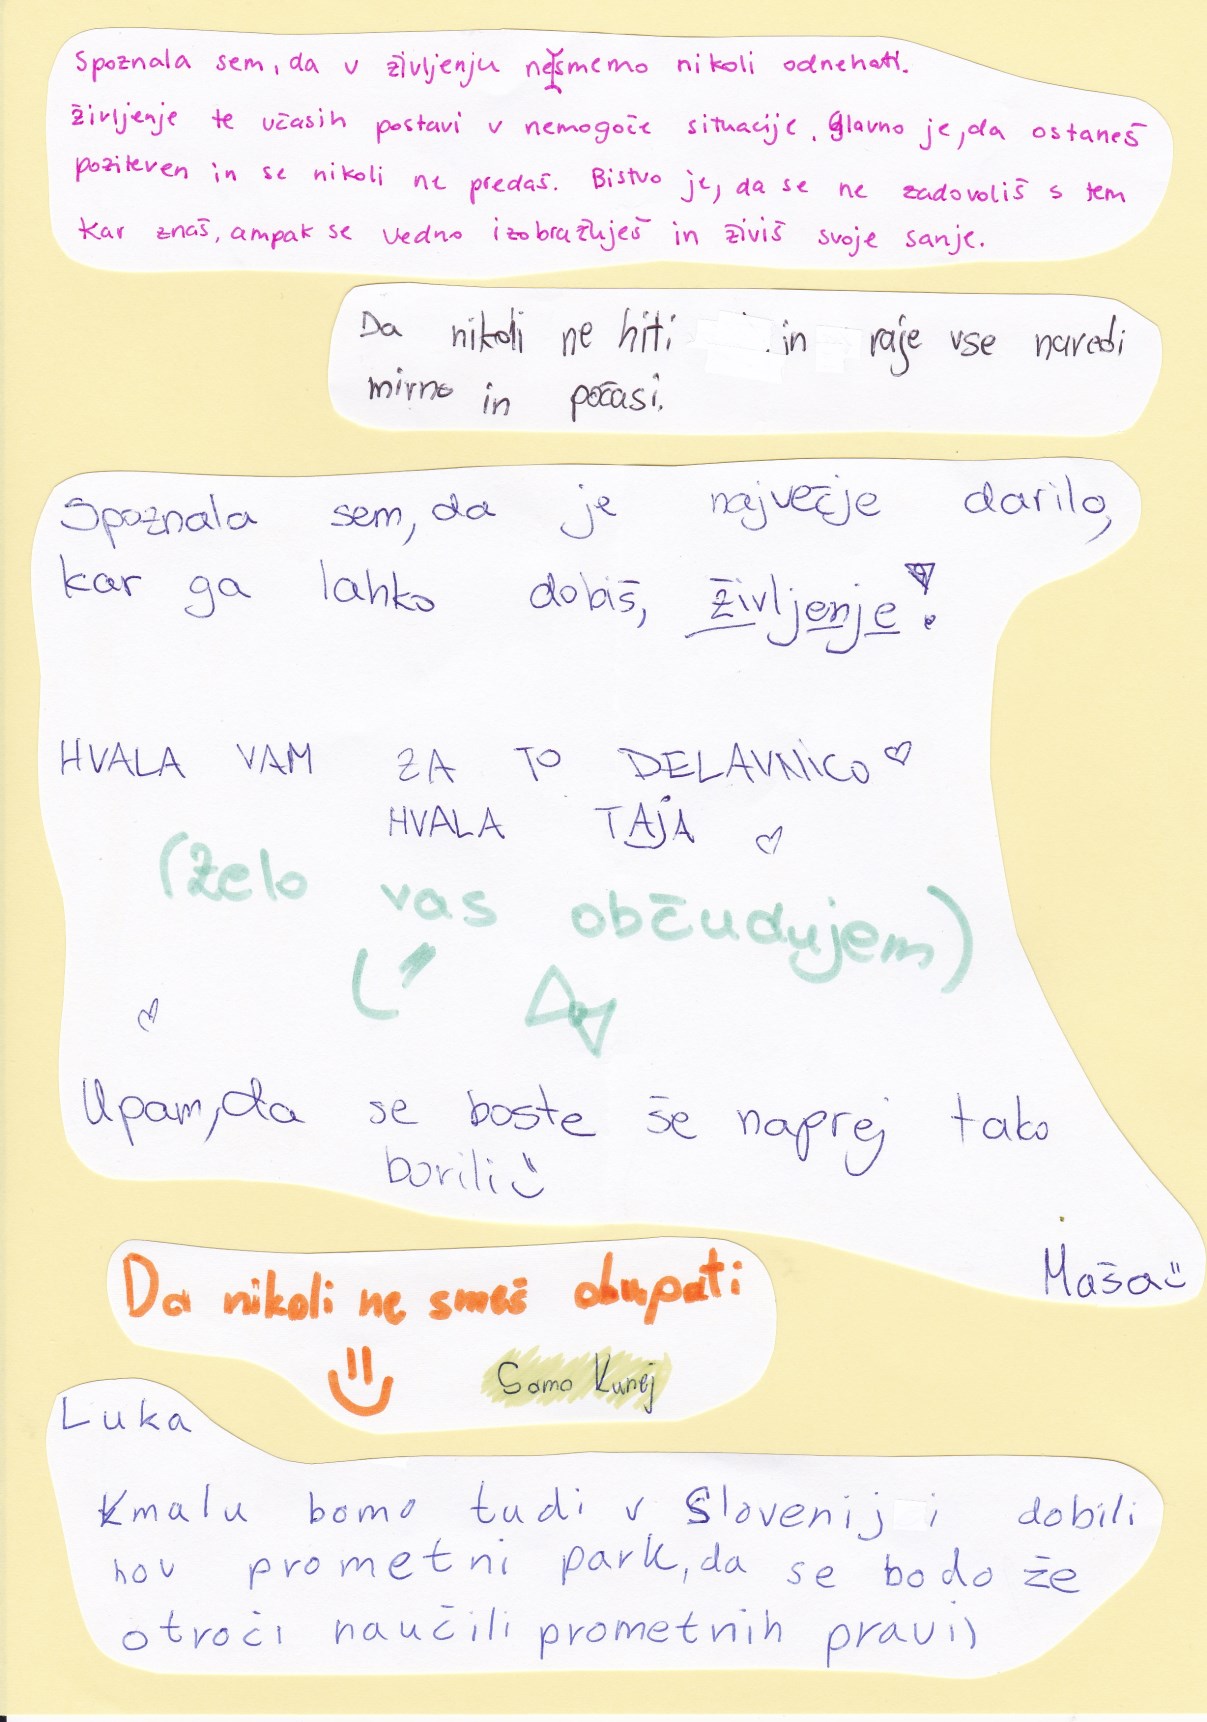 Spoznala sem, da v življenju nesmemo nikoli odnehati.
Življenje te včasih postavi v nemogoče situacije. Glavno je, da ostaneš
poziteven in se nikoli ne predaš. Bistvo je, da se ne zadovoliš s tem
kar znaš, ampak se vedno izobražuješ in živiš svoje sanje.
Da nikoli ne hiti in raje vse naredi
mirno in počasi.
Spoznala sem, da je največje darilo,
kar ga lahko dobiš, življenje!
HVALA VAM ZA TO DELAVNICO ♡
HVALA TAJA ♡
(Zelo vas občudujem)
Upam, da se boste še naprej tako
borili
Maša
Da nikoli ne smeš obupati
Samo Kunej
Luka
Kmalu bomo tudi v Slovenij i dobili
nov prometni park, da se bodo že
otroci naučili prometnih pravil